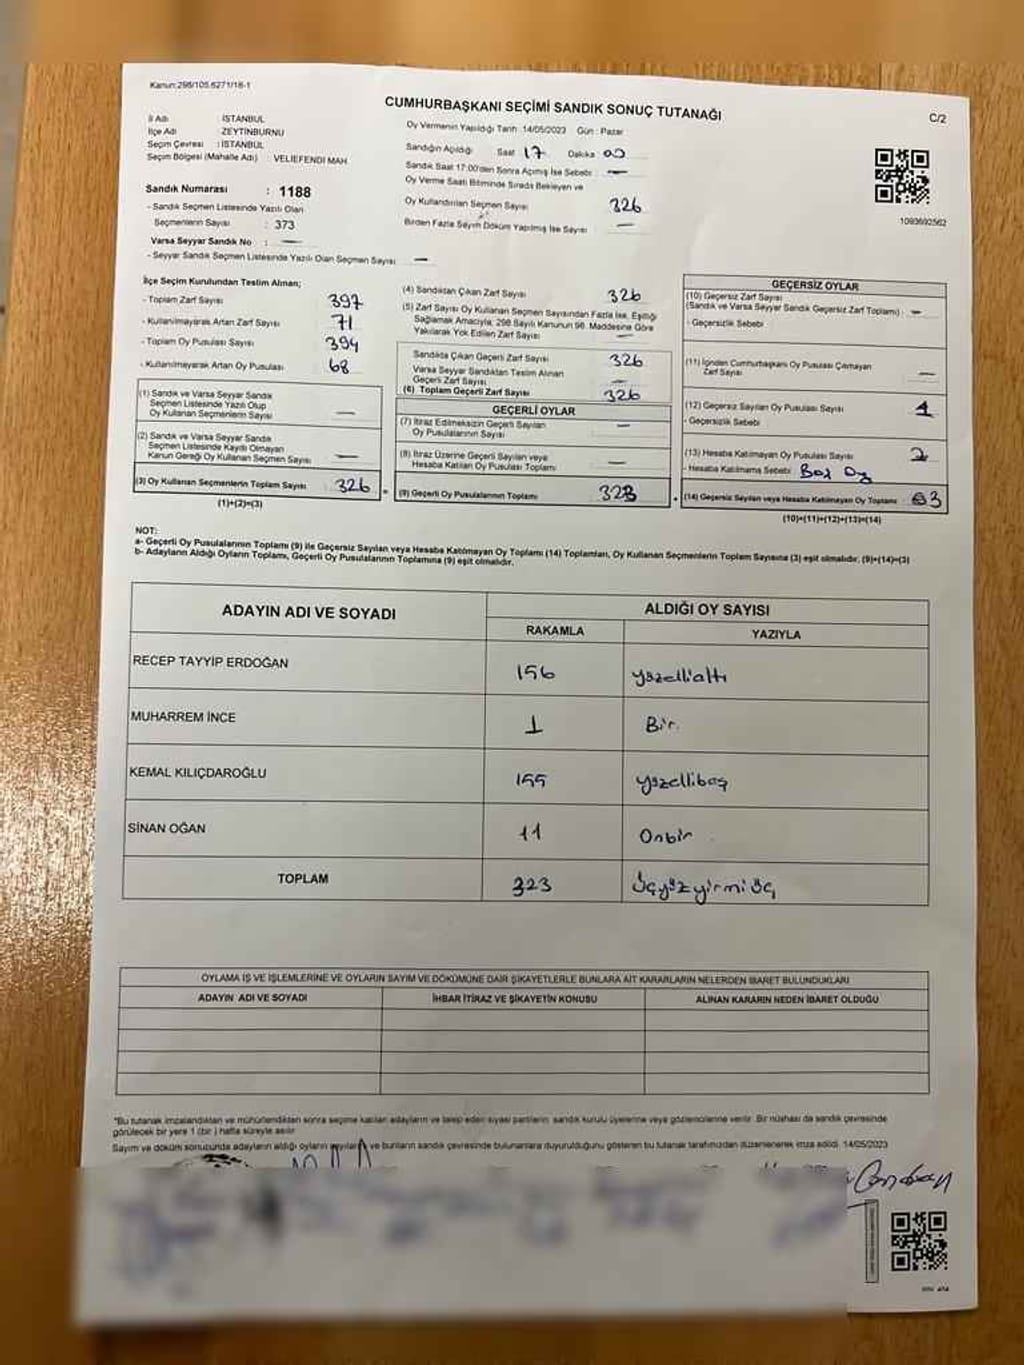 Kanun:298/105.6271/18-1
CUMHURBAŞKANI SEÇİMİ SANDIK SONUÇ TUTANAĞI
C/2
İl Adı : İSTANBUL
İlçe Adı : ZEYTİNBURNU
Seçim Çevresi : İSTANBUL
Seçim Bölgesi (Mahalle Adı) : VELİEFENDİ MAH.
Sandık Numarası : 1188
- Sandık Seçmen Listesinde Yazılı Olan
Seçmenlerin Sayısı : 373
Varsa Seyyar Sandık No : —
- Seyyar Sandık Seçmen Listesinde Yazılı Olan Seçmen Sayısı —
Oy Vermenin Yapıldığı Tarih :14/05/2023 Gün : Pazar
Sandığın Açıldığı Saat 17 Dakika 00
Sandık Saat 17:00'den Sonra Açılmış İse Sebebi —
Oy Verme Saati Bitiminde Sırada Bekleyen ve
Oy Kullandırılan Seçmen Sayısı 326
Birden Fazla Sayım Döküm Yapılmış İse Sayısı —
1093692562
İlçe Seçim Kurulundan Teslim Alınan;
- Toplam Zarf Sayısı 397
- Kullanılmayarak Artan Zarf Sayısı 71
- Toplam Oy Pusulası Sayısı 394
- Kullanılmayarak Artan Oy Pusulası 68
(1) Sandık ve Varsa Seyyar Sandık
Seçmen Listesinde Yazılı Olup
Oy Kullanan Seçmenlerin Sayısı —
(2) Sandık ve Varsa Seyyar Sandık
Seçmen Listesinde Kaydı Olmayan
Kanun Gereği Oy Kullanan Seçmen Sayısı —
(3) Oy Kullanan Seçmenlerin Toplam Sayısı 326
(1)+(2)=(3)
(4) Sandıktan Çıkan Zarf Sayısı 326
(5) Zarf Sayısı Oy Kullanan Seçmen Sayısından Fazla İse, Eşitliği
Sağlamak Amacıyla, 298 Sayılı Kanunun 98. Maddesine Göre
Yakılarak Yok Edilen Zarf Sayısı —
Sandıkta Çıkan Geçerli Zarf Sayısı 326
Varsa Seyyar Sandıktan Teslim Alınan
Geçerli Zarf Sayısı —
(6) Toplam Geçerli Zarf Sayısı 326
GEÇERLİ OYLAR
(7) İtiraz Edilmeksizin Geçerli Sayılan
Oy Pusulalarının Sayısı —
(8) İtiraz Üzerine Geçerli Sayılan veya
Hesaba Katılan Oy Pusulası Toplamı —
(9) Geçerli Oy Pusulalarının Toplamı 323
GEÇERSİZ OYLAR
(10) Geçersiz Zarf Sayısı
(Sandık ve Varsa Seyyar Sandık Geçersiz Zarf Toplamı) : —
- Geçersizlik Sebebi
(11) İçinden Cumhurbaşkanı Oy Pusulası Çıkmayan
Zarf Sayısı —
(12) Geçersiz Sayılan Oy Pusulası Sayısı 1
- Geçersizlik Sebebi
(13) Hesaba Katılmayan Oy Pusulası Sayısı 2
- Hesaba Katılmama Sebebi Boş Oy
(14) Geçersiz Sayılan veya Hesaba Katılmayan Oy Toplamı 3
(10)+(11)+(12)+(13)=(14)
NOT:
a- Geçerli Oy Pusulalarının Toplamı (9) ile Geçersiz Sayılan veya Hesaba Katılmayan Oy Toplamı (14) Toplamları, Oy Kullanan Seçmenlerin Toplam Sayısına (3) eşit olmalıdır. (9)+(14)=(3)
b- Adayların Aldığı Oyların Toplamı, Geçerli Oy Pusulalarının Toplamına (9) eşit olmalıdır.
ADAYIN ADI VE SOYADI
ALDIĞI OY SAYISI
RAKAMLA YAZIYLA
RECEP TAYYİP ERDOĞAN 156 yüzellialtı
MUHARREM İNCE 1 Bir.
KEMAL KILIÇDAROĞLU 155 yüzellibeş
SİNAN OĞAN 11 Onbir
TOPLAM 323 Üçyüzyirmiüç
OYLAMA İŞ VE İŞLEMLERİNE VE OYLARIN SAYIM VE DÖKÜMÜNE DAİR ŞİKAYETLERLE BUNLARA AİT KARARLARIN NELERDEN İBARET BULUNDUKLARI
ADAYIN ADI VE SOYADI İHBAR İTİRAZ VE ŞİKAYETİN KONUSU ALINAN KARARIN NEDEN İBARET OLDUĞU
*Bu tutanak imzalandıktan ve mühürlendikten sonra seçime katılan adayların ve talep eden siyasi partilerin sandık kurulu üyelerine veya gözlemcilerine verilir. Bir nüshası da sandık çevresinde
görülecek bir yere 1 (bir) hafta süreyle asılır.
Sayım ve döküm sonucunda adayların aldığı oyların ve bunların sandık çevresinde bulunanlara duyurulduğunu gösteren bu tutanak tarafımızdan düzenlenerek imza edildi. 14/05/2023